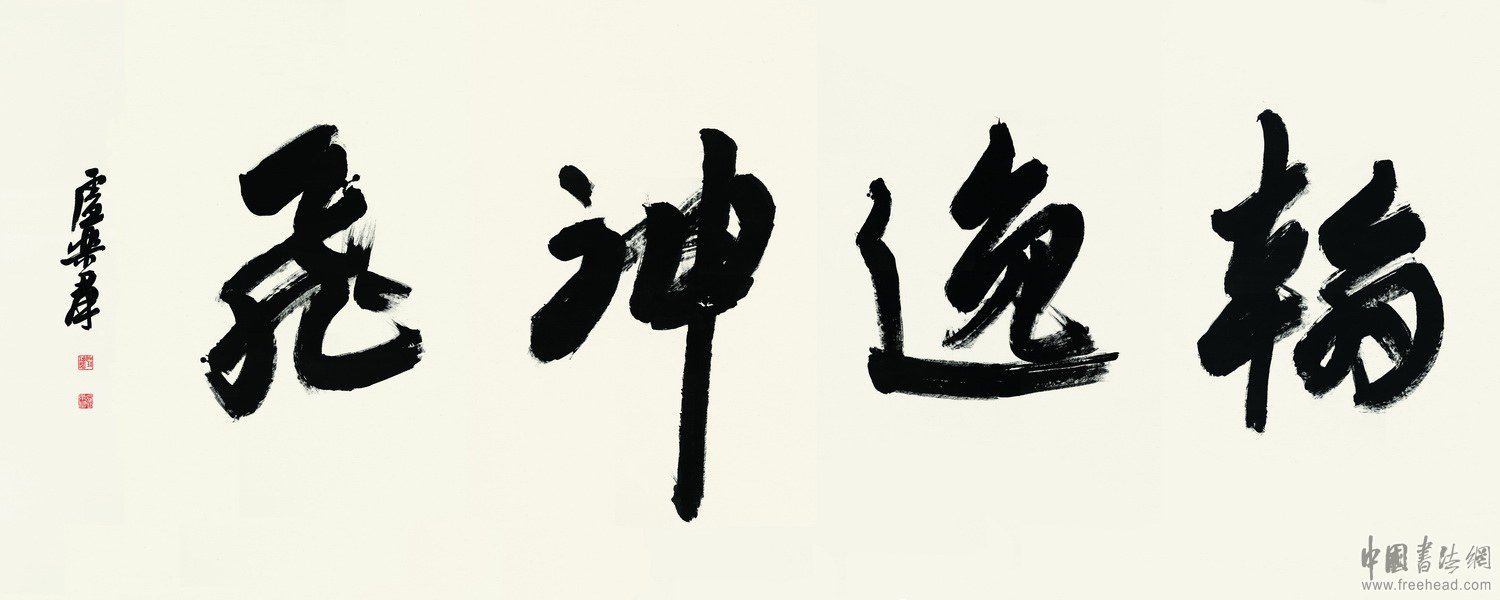 翰逸神飛
盧樂群
中國書法網
www.freehead.com